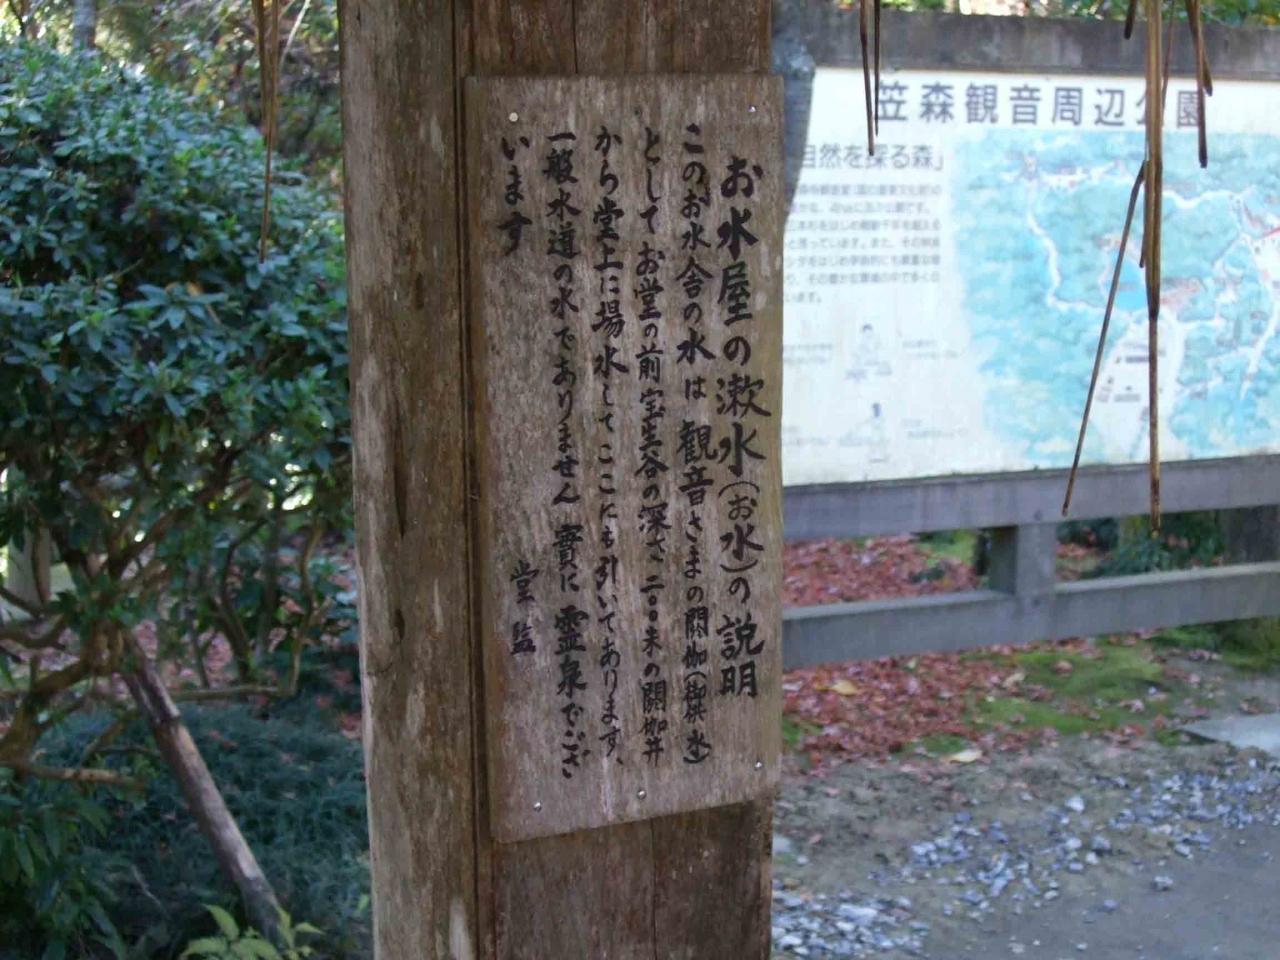 お水屋の漱水(お水)の説明
このお水舎の水は観音さまの閼伽(御供水)
としてお堂の前宝生谷の深さ二〇〇米の閼伽井
から堂上に揚水してここにも引いてあります、
一般水道の水でありません實に霊泉でござ
います
堂監
笠森観音周辺公園
自然を探る森」